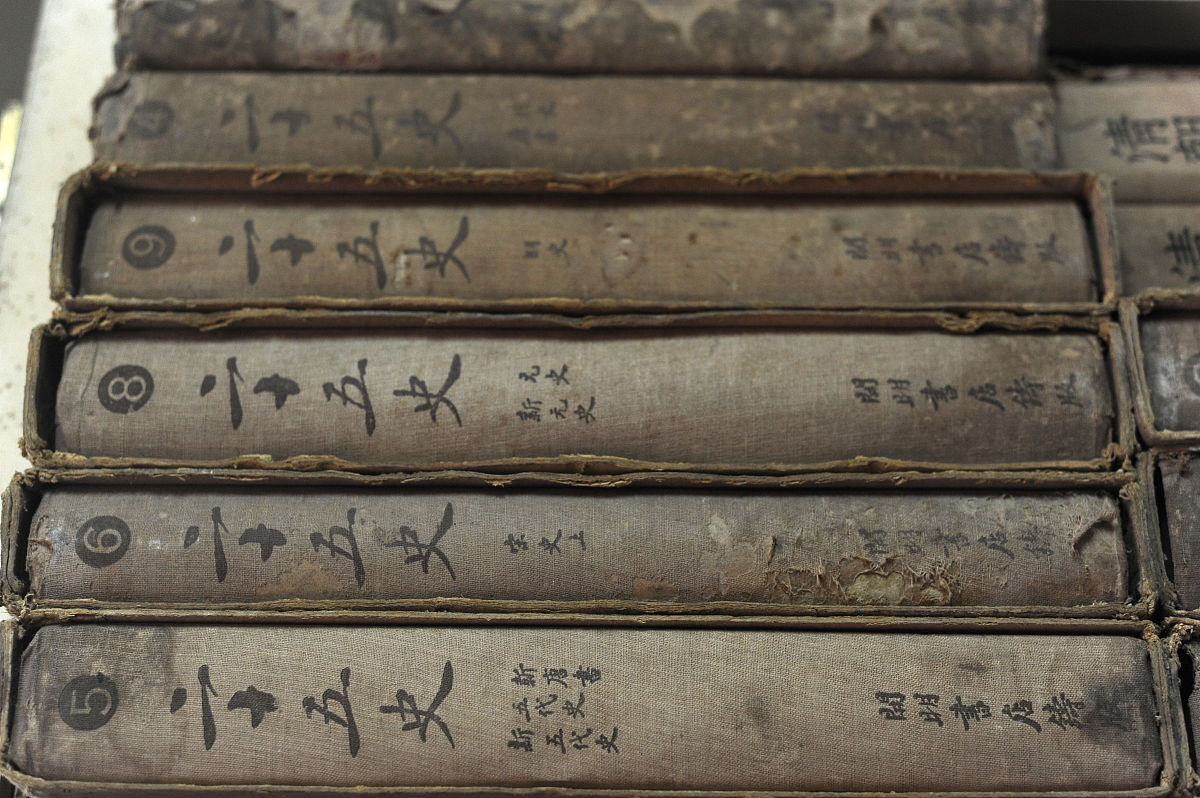 4 二十五史
9 二十五史 明史 開明書店鑄版
8 二十五史
元史
新元史
開明書店鑄版
6 二十五史 宋史上 開明書店鑄
5 二十五史
新唐書
五代史
新五代史
開明書店鑄
清
清